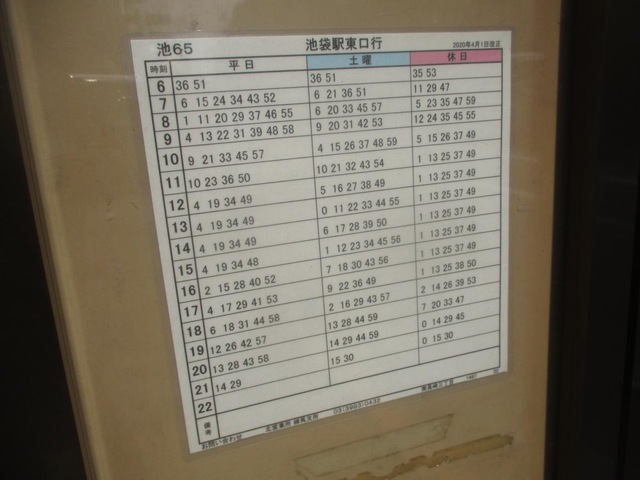 池65 池袋駅東口行 2020年4月1日改正
時刻 平日 土曜 休日
6 36 51 36 51 35 53
7 6 15 24 34 43 52 6 21 36 51 11 29 47
8 1 11 20 29 37 46 55 6 20 33 45 57 5 23 35 47 59
9 4 13 22 31 39 48 58 9 20 31 42 53 12 24 35 45 55
10 9 21 33 45 57 4 15 26 37 48 59 5 15 26 37 49
11 10 23 36 50 10 21 32 43 54 1 13 25 37 49
12 4 19 34 49 5 16 27 38 49 1 13 25 37 49
13 4 19 34 49 0 11 22 33 44 55 1 13 25 37 49
14 4 19 34 49 6 17 28 39 50 1 13 25 37 49
15 4 19 34 48 1 12 23 34 45 56 1 13 25 37 49
16 2 15 28 40 52 7 18 30 43 56 1 13 25 37 49
17 4 17 29 41 53 9 22 36 49 1 13 25 38 50
18 6 18 31 44 58 2 16 29 43 57 2 14 26 39 53
19 12 26 42 57 13 28 44 59 7 20 33 47
20 13 28 43 58 14 29 44 59 0 14 29 45
21 14 29 15 30 0 15 30
22
備考
お問い合わせ 北営業所 練馬支所 03(3993)0432